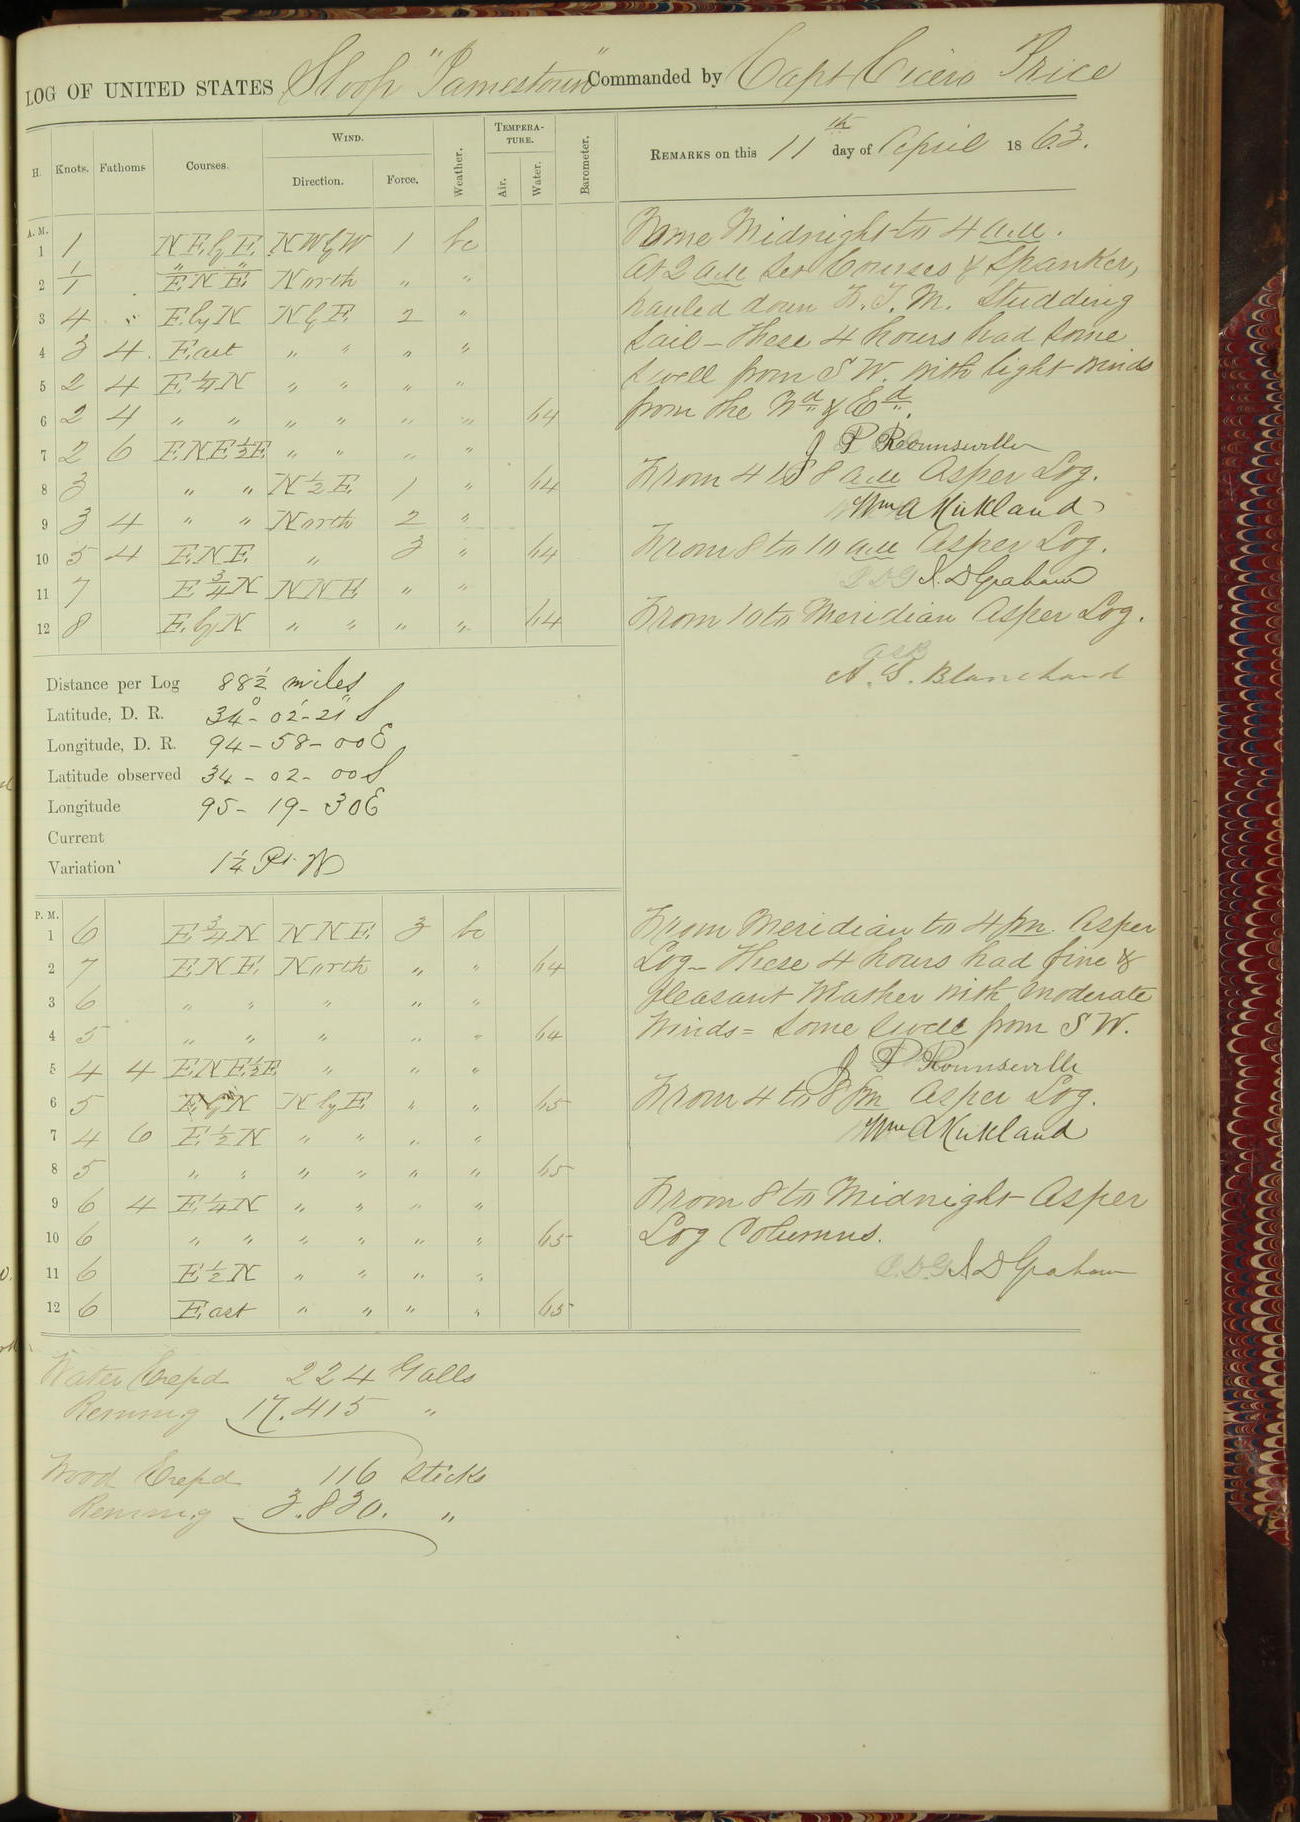 LOG OF UNITED STATES Sloop "Jamestown" Commanded by Capt Cicero Price
H. Knots. Fathoms Courses. WIND. Direction. Force. Weather. TEMPERATURE. Air. Water. Barometer. REMARKS on this 11th day of April 1863.
A. M.
1 1 N E by E N W by W 1 bc From Midnight to 4 a.m.
2 1/1 " " E N E North " " At 2 a.m. Set Courses & Spanker,
3 4 E by N N by E 2 " hauled down F. T. M. Studding
4 3 4 East " " " " Sail - These 4 hours had Some
5 2 4 E 1/4 N " " " " Swell from S W. with light winds
6 2 4 " " " " " " 64 from the Nd & Ed.
J P Rounseville
7 2 6 E N E 1/2 E " " " "
8 3 " " N 1/2 E 1 " 64 From 4 to 8 a.m. As per Log.
Wm A Kirkland
9 3 4 " " North 2 "
10 5 4 E N E " 3 " 64 From 8 to 10 a.m. As per Log.
J. D Graham
11 7 E 3/4 N N N E " "
12 8 E by N " " " " 64 From 10 to Meridian As per Log.
A. S. Blanchard
Distance per Log 88 1/2 miles
Latitude, D. R. 34° - 02' - 21" S
Longitude, D. R. 94 - 58 - 00 E
Latitude observed 34 - 02 - 00 S
Longitude 95 - 19 - 30 E
Current
Variation 1 1/4 Pt. W
P. M.
1 6 E 3/4 N N N E 3 bc From Meridian to 4 pm. As per
2 7 E N E North " " 64 Log - These 4 hours had fine &
3 6 " " " " " pleasant Weather with moderate
4 5 " " " " " 64 Winds = Some Swell from S W.
5 4 4 E N E 1/2 E " " " J P Rounseville
6 5 E by N N by E " " 65 From 4 to 8 pm As per Log.
7 4 6 E 1/2 N " " " " Wm A Kirkland
8 5 " " " " " " 65
9 6 4 E 1/4 N " " " " From 8 to Midnight As per
10 6 " " " " " " 65 Log Columns.
11 6 E 1/2 N " " " " J D Graham
12 6 East " " " " 65
Water Expd 224 Galls
Reming 17.415 "
Wood Expd 116 Sticks
Reming 3.830. "